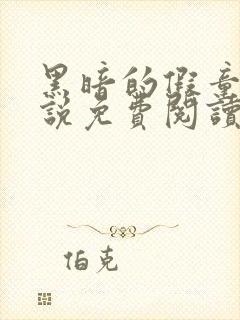 黑暗的假童
說免費閱讀
伯克